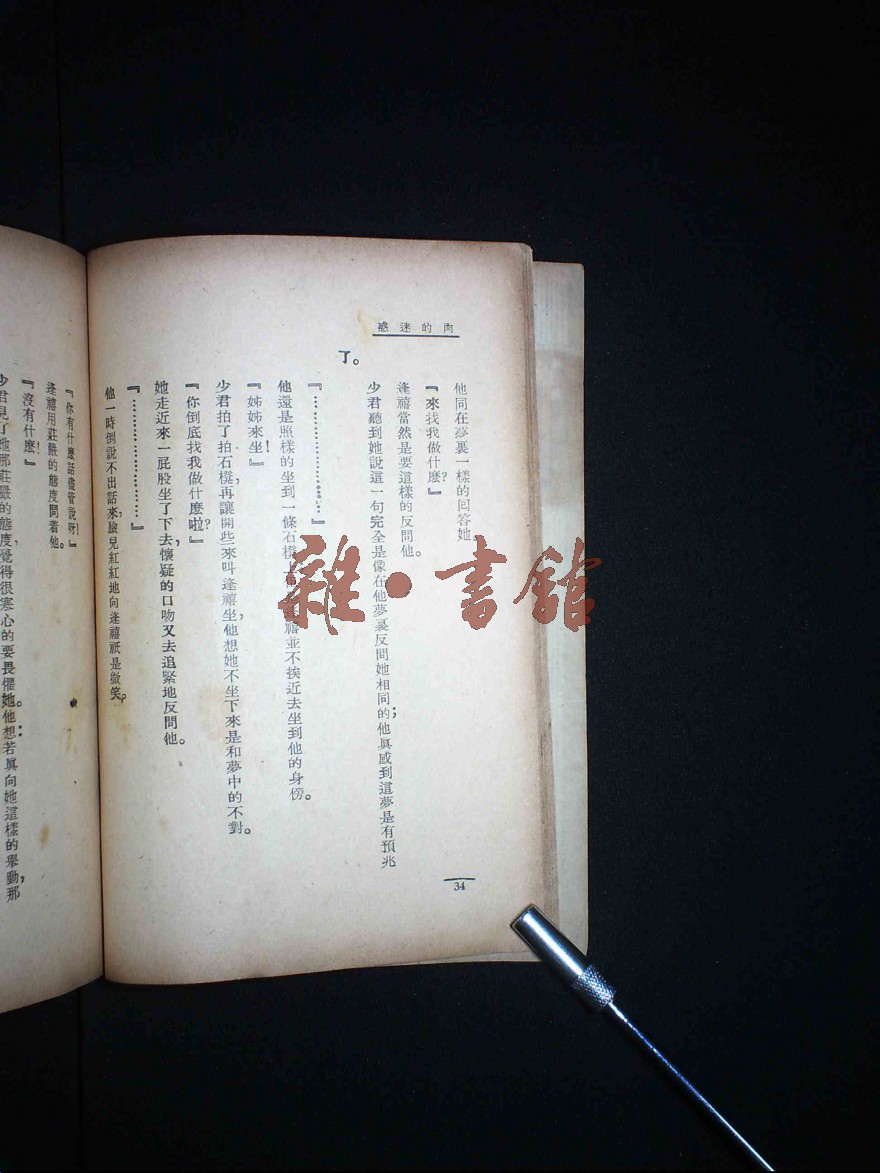 肉的迷惑
他同在夢裏一樣的回答她
『來找我做什麽?』
逢禧當然是要這樣的反問他。
少君聽到她說這一句完全是像在他夢裏反問她相同的他眞感到這夢是有預兆
了。
『……………………』
他還是照樣的坐到一條石櫈上逢禧並不挨近去坐到他的身傍。
『姊姊來坐!』
少君拍了拍石櫈,再讓開些來叫逢禧坐,他想她不坐下來是和夢中的不對。
『你倒底找我做什麽啦?』
她走近來一屁股坐了下去,懷疑的口吻又去追緊地反問他。
『……………………』
他一時倒說不出話來,臉兒紅紅地向逢禧祇是微笑。
『你有什麽話儘管說呀!』
逢禧用莊嚴的態度問着他。
『沒有什麽!』
少君見了她那莊嚴的態度,覺得很寒心的要畏懼她。他想:若眞向她這樣的舉動,那
34
雜·書館